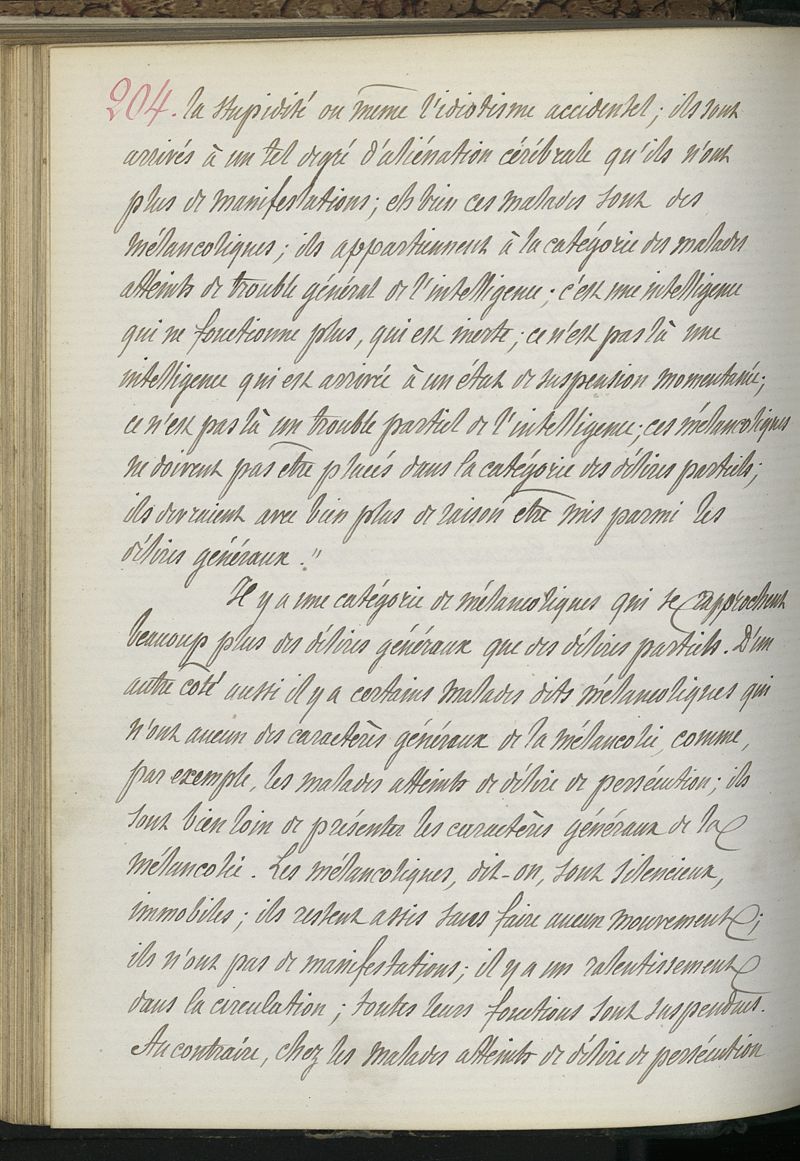 204. la stupidité ou même l'idiotisme accidentel ; ils sont
arrivés à un tel degré d'aliénation cérébrale qu'ils n'ont
plus de manifestations ; eh bien ces malades sont des
mélancoliques ; ils appartiennent à la catégorie des malades
atteints de trouble général de l'intelligence ; c'est une intelligence
qui ne fonctionne plus, qui est inerte ; ce n'est pas là une
intelligence qui est arrivée à un état de suspension momentanée ;
ce n'est pas là un trouble partiel de l'intelligence ; ces mélancoliques
ne doivent pas être placés dans la catégorie des délires partiels ;
ils devraient avec bien plus de raison être mis parmi les
délires généraux. "
Il y a une catégorie de mélancoliques qui se rapprochent
beaucoup plus des délires généraux que des délires partiels. D'un
autre coté aussi il y a certains malades dits mélancoliques qui
n'ont aucun des caractères généraux de la mélancolie, comme,
par exemple, les malades atteints de délire de persécution ; ils
sont bien loin de présenter les caractères généraux de la
mélancolie. Les mélancoliques, dit-on, sont silencieux,
immobiles ; ils restent assis sans faire aucun mouvement ;
ils n'ont pas de manifestations ; il y a un ralentissement
dans la circulation ; toutes leurs fonctions sont suspendues.
Au contraire, chez les malades atteints de délire de persécution